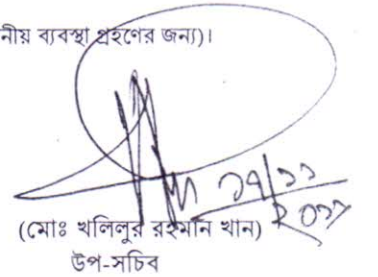 নীয় ব্যবস্থা গ্রহণের জন্য)।
(মোঃ খলিলুর রহমান খান)
উপ-সচিব